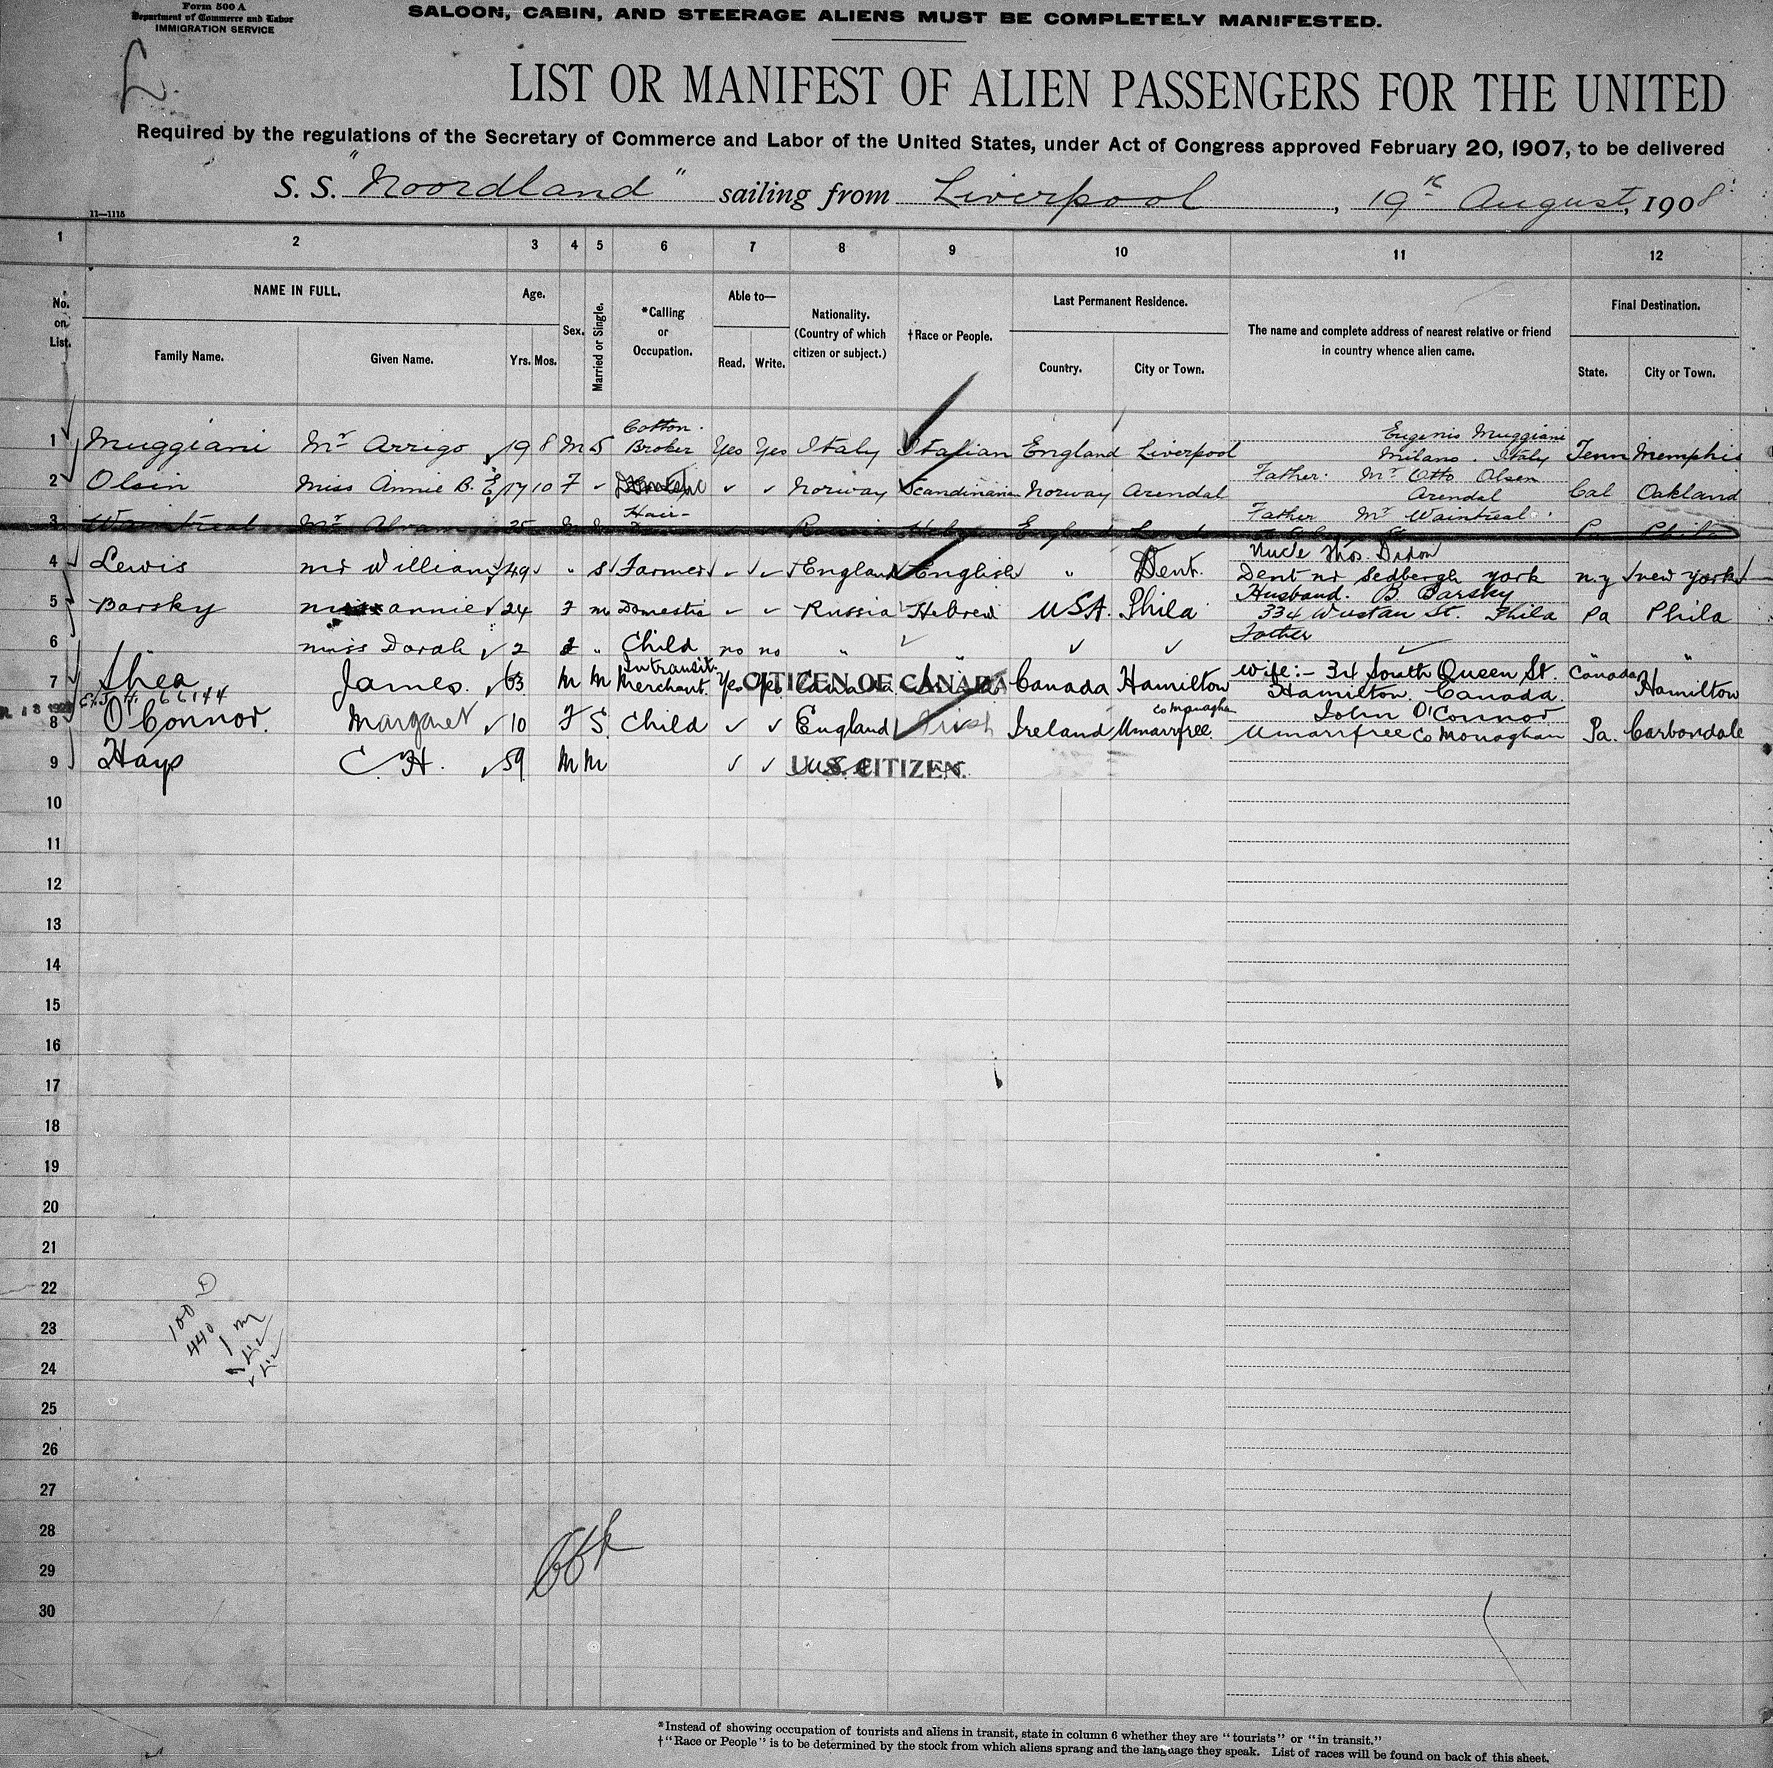 Form 500 A
Department of Commerce and Labor
IMMIGRATION SERVICE
SALOON, CABIN, AND STEERAGE ALIENS MUST BE COMPLETELY MANIFESTED.
LIST OR MANIFEST OF ALIEN PASSENGERS FOR THE UNITED
Required by the regulations of the Secretary of Commerce and Labor of the United States, under Act of Congress approved February 20, 1907, to be delivered
S. S. "Noordland" sailing from Liverpool, 19th August, 1908
11—1115
1 2 3 4 5 6 7 8 9 10 11 12
No. on List.
NAME IN FULL.
Family Name. Given Name.
Age.
Yrs. Mos.
Sex.
Married or Single.
*Calling or Occupation.
Able to—
Read. Write.
Nationality. (Country of which citizen or subject.)
†Race or People.
Last Permanent Residence.
Country. City or Town.
The name and complete address of nearest relative or friend in country whence alien came.
Final Destination.
State. City or Town.
1 Muggiani Mr Arrigo 19 8 M S Cotton Broker Yes Yes Italy Italian England Liverpool Eugenio Muggiani Milano. Italy Tenn Memphis
2 Olsin Miss Annie B. 17 10 F Domestic Norway Scandinavian Norway Arendal Father Mr Otto Olsen Arendal Cal Oakland
3 Waintreal Mr Abram 25 M Hair- Russia Hebrew England Father Mr Waintreal Pa Phila
4 Lewis Mr William 49 " S Farmer England English " Dent. Uncle Thos. Dixon Dent nr Sedbergh York N.Y New York
5 Barsky annie 24 F M Domestic Russia Hebrew USA. Phila Husband. B Barsky 334 St. Phila Pa Phila
6 Miss Dorah 2 " Child no no " Father "
7 Shea James. 63 M M Intransit. Merchant. Yes Yes CITIZEN OF CANADA Canada Hamilton Wife:- 34 South Queen St. Hamilton. Canada. Canada Hamilton
66144
8 O'Connor. Margaret 10 F S. Child England Irish Ireland Co Monaghan John O'Connor Co Monaghan Pa. Carbondale
9 Hays C. H. 59 M M U.S. CITIZEN.
10
11
12
13
14
15
16
17
18
19
20
21
22
23
24
25
26
27
28
29
30
100
440
*Instead of showing occupation of tourists and aliens in transit, state in column 6 whether they are "tourists" or "in transit."
†"Race or People" is to be determined by the stock from which aliens sprang and the language they speak. List of races will be found on back of this sheet.